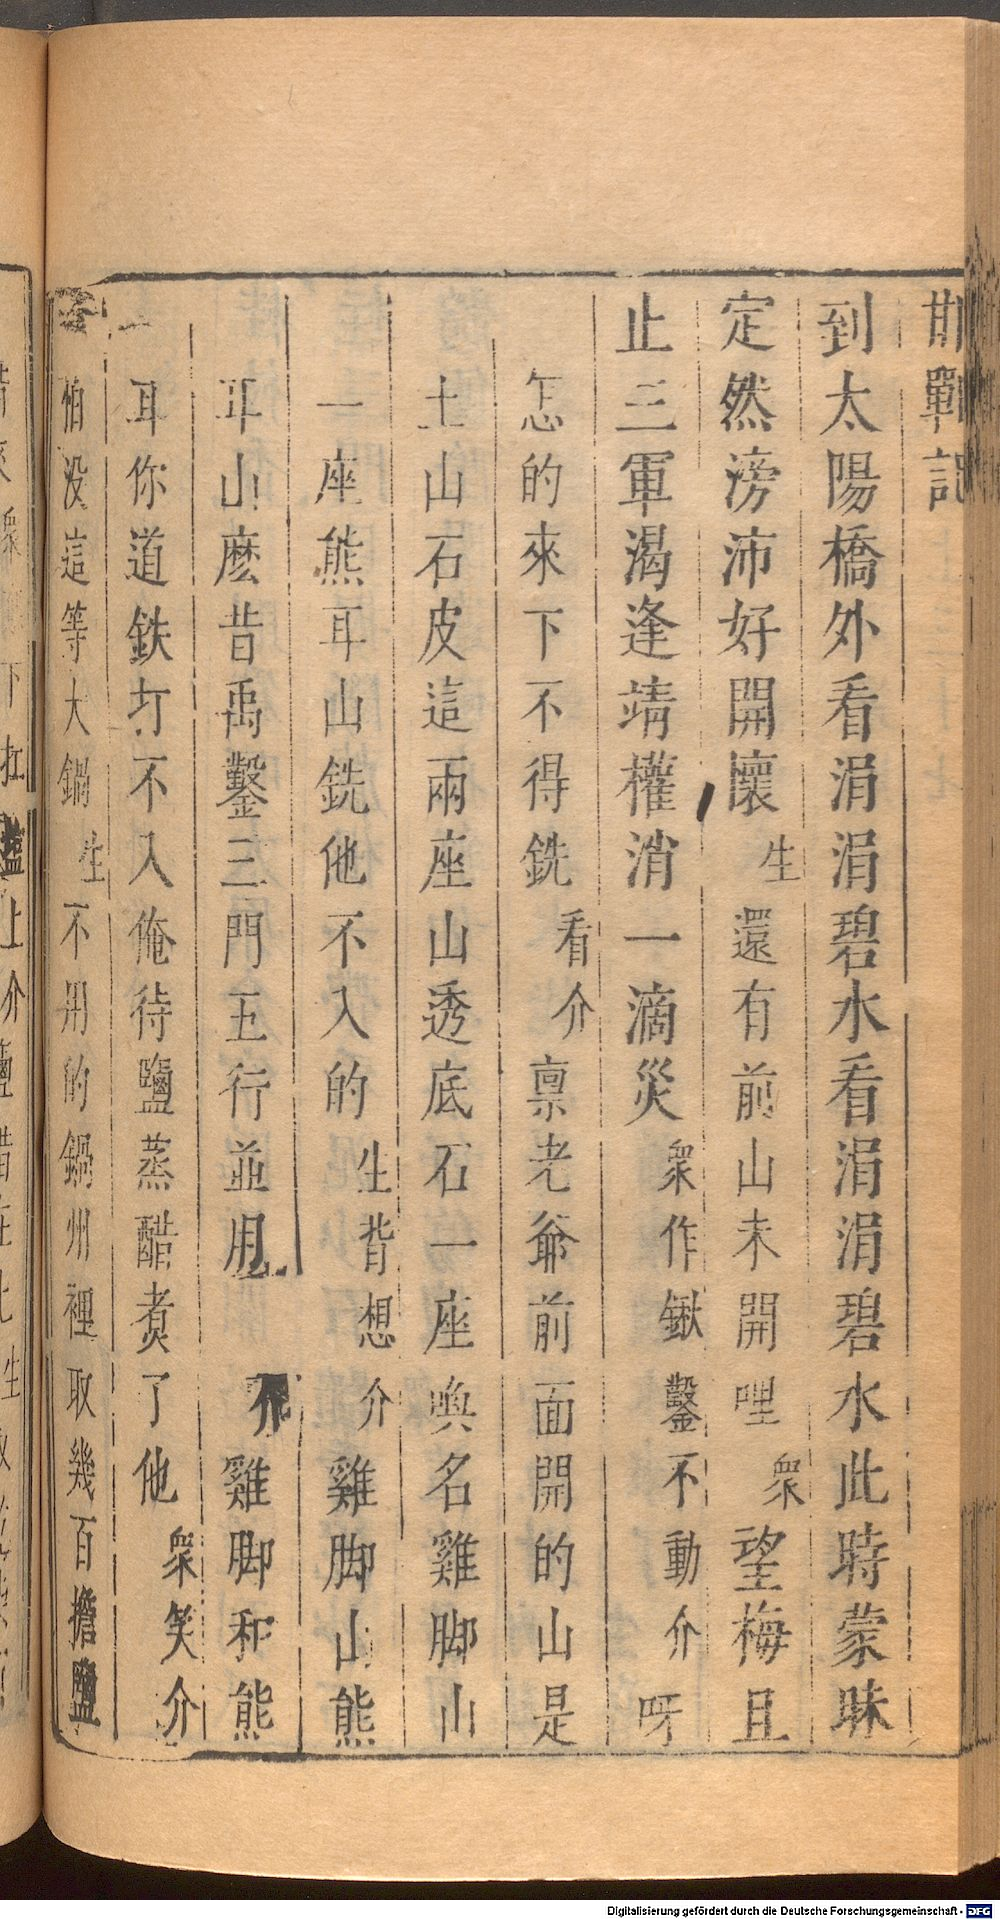 邯鄲記
到太陽橋外看涓涓碧水看涓涓碧水此時蒙昧
定然滂沛好開懷生還有前山未開哩衆望梅且
止三軍渴逢靖權消一滴災衆作鍬鑿不動介呀
怎的來下不得銑看介禀老爺前面開的山是
土山石皮這兩座山透底石一座喚名雞脚山
一座熊耳山銑他不入的生背想介雞脚山熊
耳山麽昔禹鑿三門五行並用介雞脚和熊
耳你道鉄打不入俺待鹽蒸醋煮了他衆笑介
怕没這等大鍋生不用的鍋州裡取幾百擔鹽
Digitalisierung gefördert durch die Deutsche Forschungsgemeinschaft - DFG